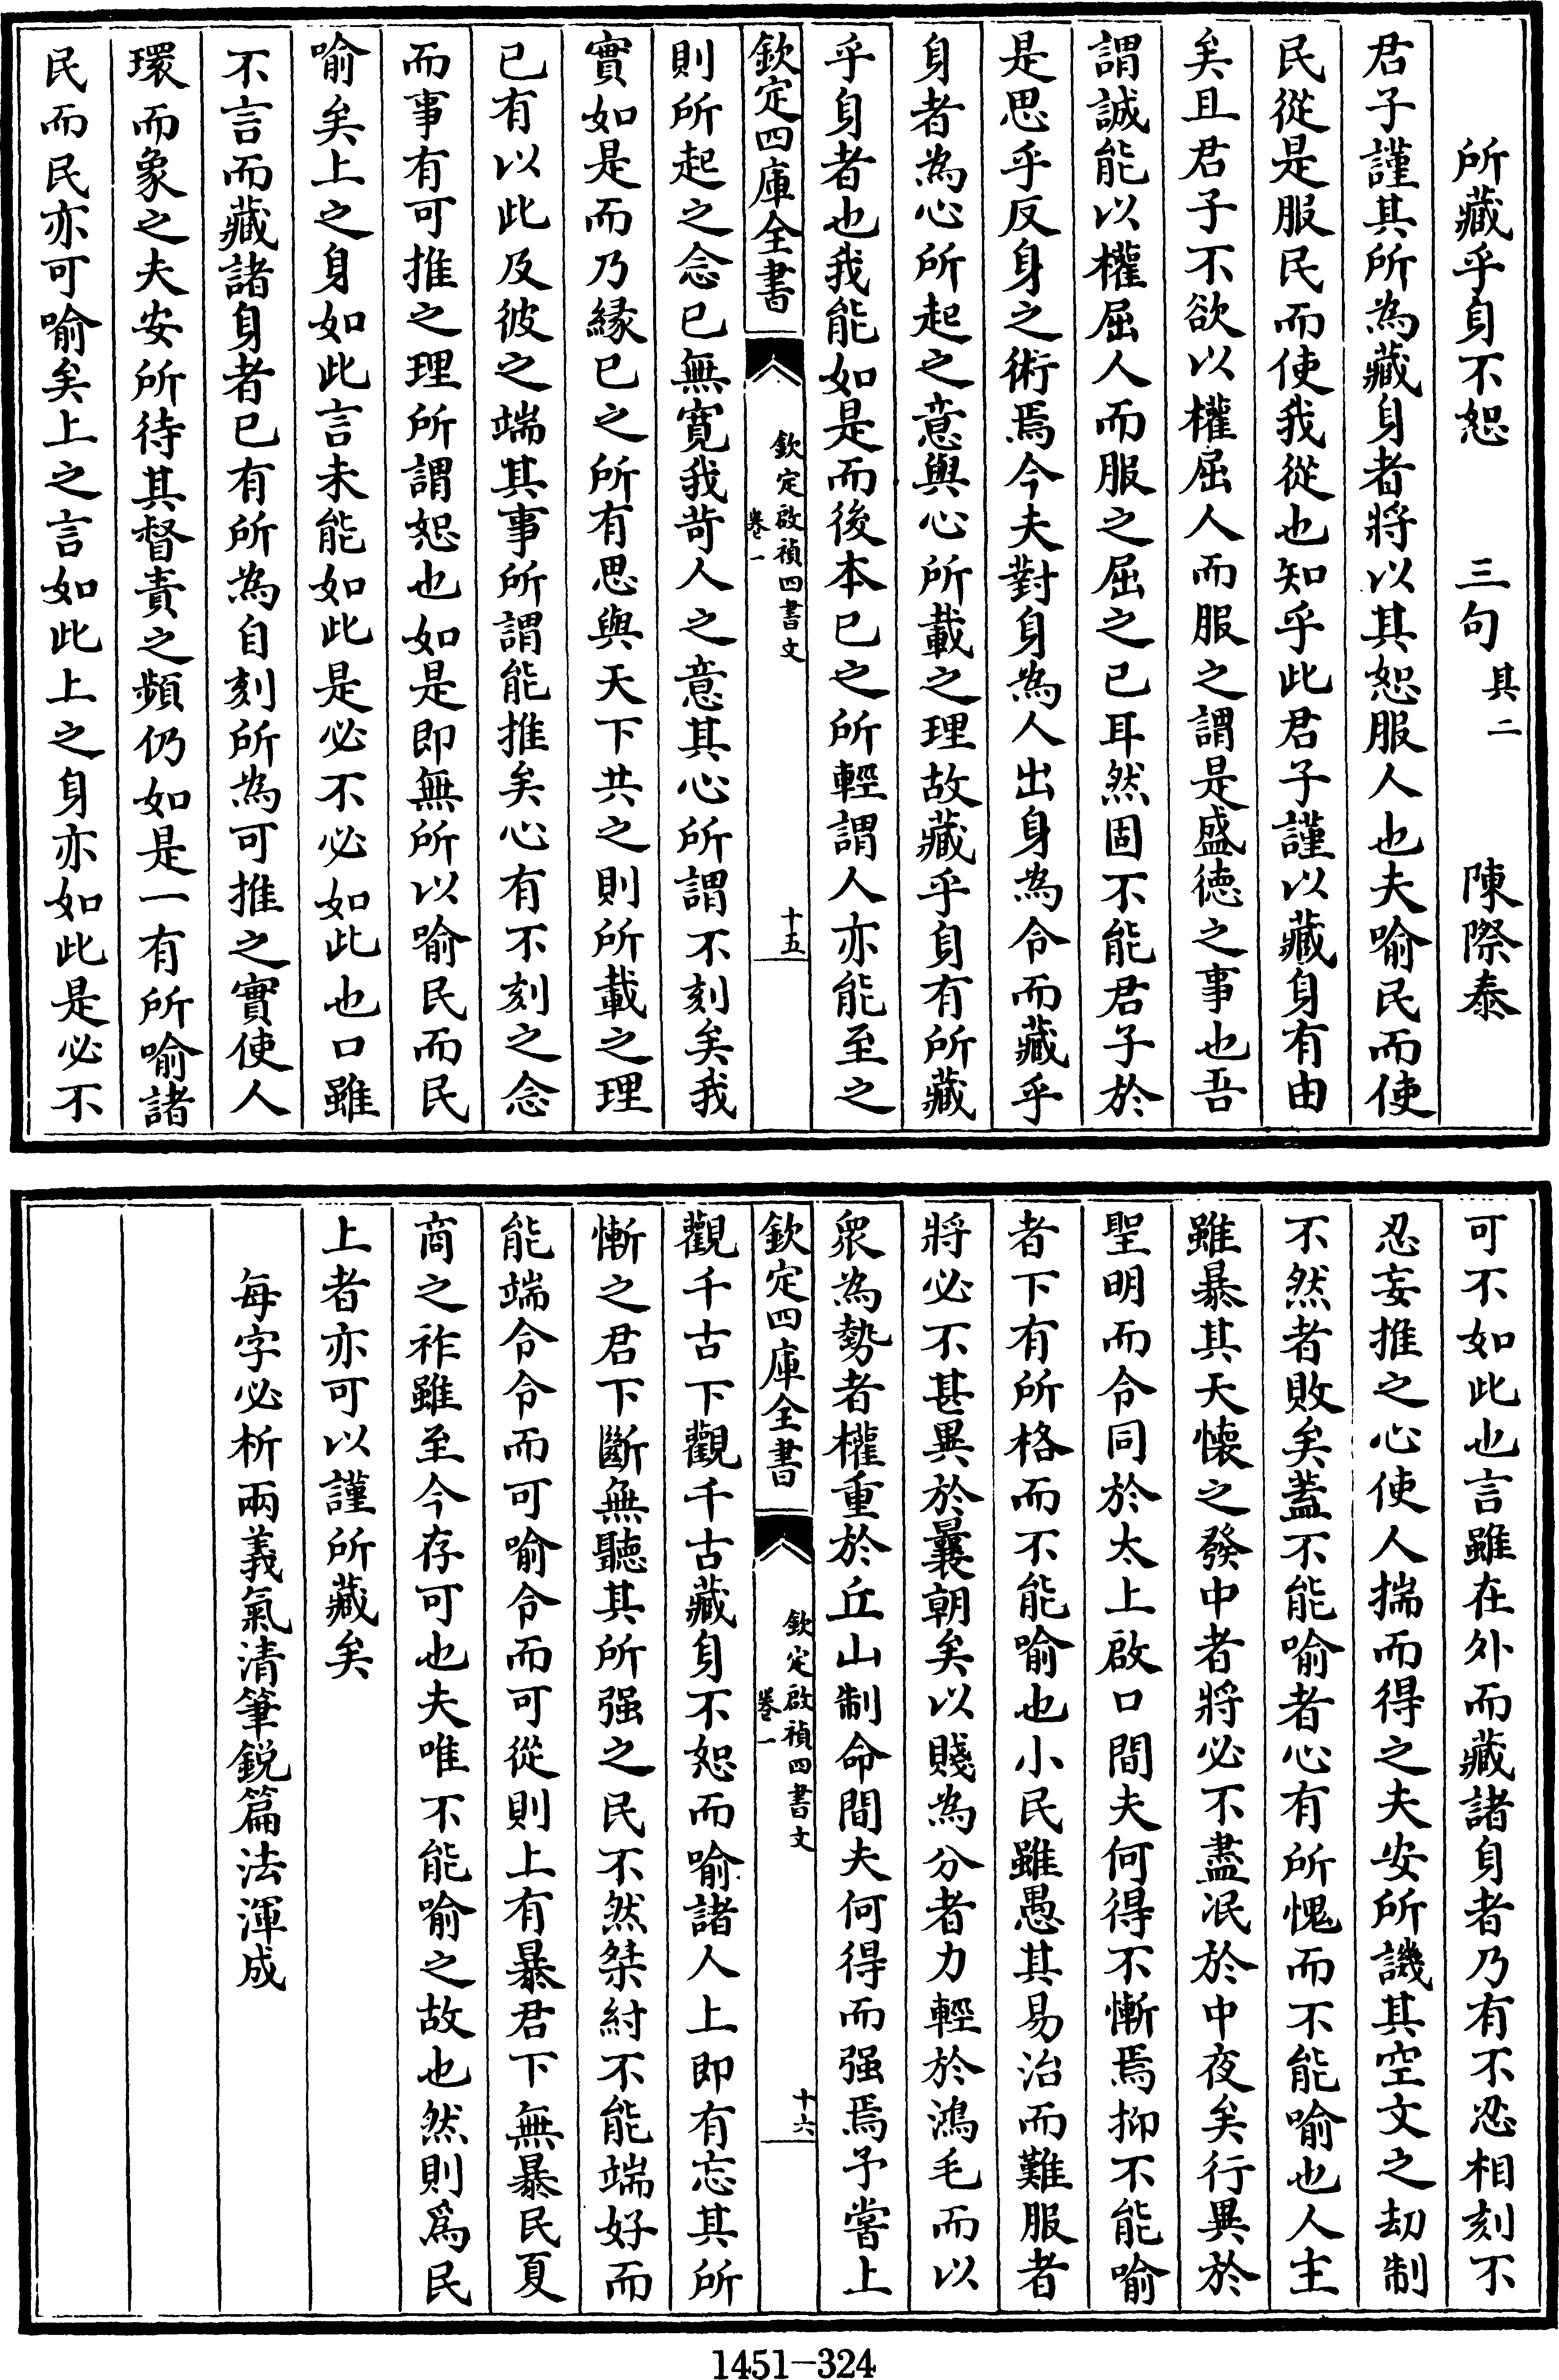 所藏乎身不恕　三句其二　陳際泰
君子謹其所為藏身者將以其恕服人也夫喻民而使
民從是服民而使我從也知乎此君子謹以藏身有由
矣且君子不欲以權屈人而服之謂是盛德之事也吾
謂誠能以權屈人而服之屈之已耳然固不能君子於
是思乎反身之術焉今夫對身為人出身為令而藏乎
身者為心所起之意與心所載之理故藏乎身有所藏
乎身者也我能如是而後本已之所輕謂人亦能至之
欽定四庫全書
欽定啟禎四書文
卷一
十五
則所起之念已無寬我苛人之意其心所謂不刻矣我
實如是而乃緣已之所有思與天下共之則所載之理
已有以此及彼之端其事所謂能推矣心有不刻之念
而事有可推之理所謂恕也如是即無所以喻民而民
喻矣上之身如此言未能如此是必不必如此也口雖
不言而藏諸身者已有所為自刻所為可推之實使人
環而象之夫安所待其督責之頻仍如是一有所喻諸
民而民亦可喻矣上之言如此上之身亦如此是必不
可不如此也言雖在外而藏諸身者乃有不忍相刻不
忍妄推之心使人揣而得之夫安所譏其空文之刼制
不然者敗矣蓋不能喻者心有所愧而不能喻也人主
雖暴其天懷之發中者將必不盡泯於中夜矣行異於
聖明而令同於太上啟口間夫何得不慚焉抑不能喻
者下有所格而不能喻也小民雖愚其易治而難服者
將必不甚異於曩朝矣以賤為分者力輕於鴻毛而以
衆為勢者權重於丘山制命間夫何得而强焉予嘗上
欽定四庫全書
欽定啟禎四書文
卷一
十六
觀千古下觀千古藏身不恕而喻諸人上即有忘其所
慚之君下斷無聽其所强之民不然桀紂不能端好而
能端令令而可喻令而可從則上有暴君下無暴民夏
商之祚雖至今存可也夫唯不能喻之故也然則為民
上者亦可以謹所藏矣
每字必析兩義氣清筆銳篇法渾成
1451-324